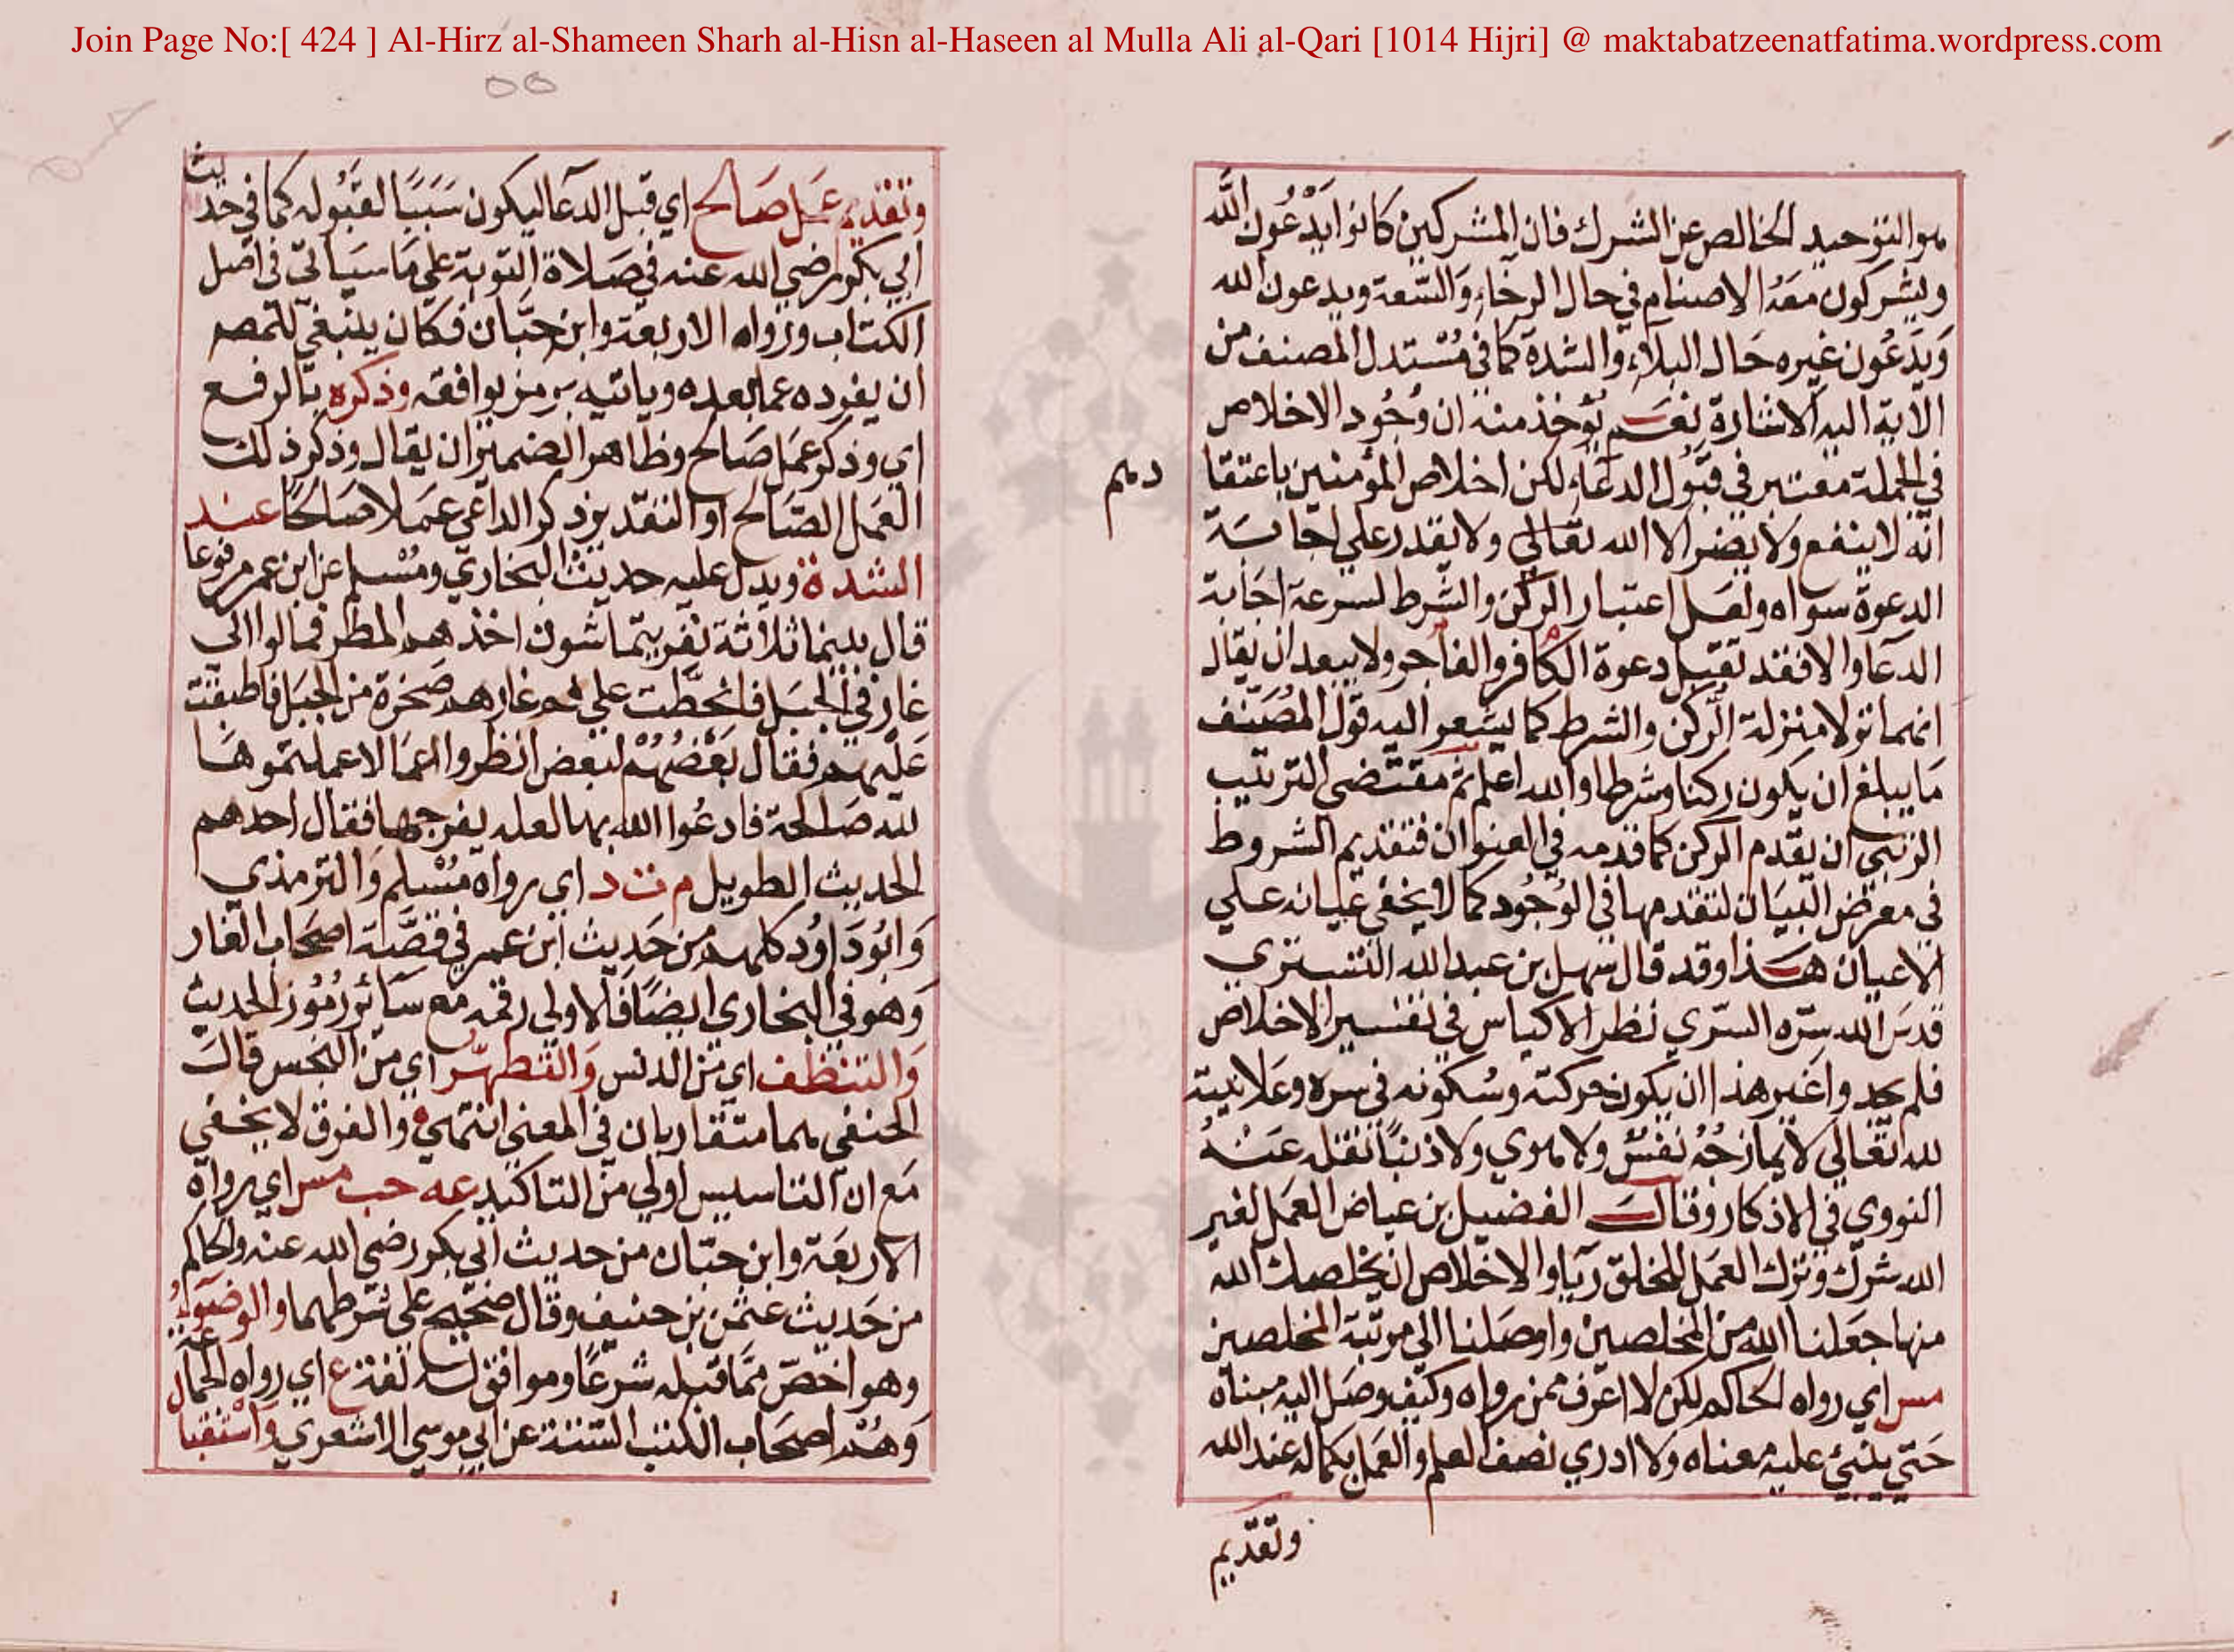 Join Page No:[ 424 ] Al-Hirz al-Shameen Sharh al-Hisn al-Haseen al Mulla Ali al-Qari [1014 Hijri] @ maktabatzeenatfatima.wordpress.com
هو التوحيد الخالص عن الشرك فان المشركين كانوا يدعون الله
ويشركون معه الاصنام في حال الرخاء والسعة ويدعون الله
ويدعون غيره حال البلاء والشدة كما في مستدل المصنف من
الاية اليه الاشارة نعم يؤخذ منه ان وجود الاخلاص
في الجملة معتبر في قبول الدعاء لكن اخلاص المؤمنين باعتقا
دهم
انه لا ينفع ولا يضر الا الله تعالي ولا يقدر علي اجابة
الدعوة سواه ولعل اعتبار الركن والشرط لسرعة اجابة
الدعا والا فقد تقبل دعوة الكافر والفاجر ولا يبعد ان يقال
انهما نزلا منزلة الركن والشرط كما يشعر اليه قول المصنف
ما يبلغ ان يكون ركنا وشرطا والله اعلم ثم مقتضي الترتيب
الرتبي ان يقدم الركن كما قدمه في العنوان فتقديم الشروط
في معرض البيان لتقدمها في الوجود كما لا يخفي عيانه علي
الاعيان هذا وقد قال سهل بن عبد الله التستري
قدس الله سره السري نظر الاكياس في تفسير الاخلاص
فلم يجدوا غير هذا ان يكون حركته وسكونه في سره وعلانيته
لله تعالي لا يمازجه نفس ولا هوي ولا دنيا نقله عنه
النووي في الاذكار وقال الفضيل بن عياض العمل لغير
الله شرك وترك العمل للخلق ريا والاخلاص ان يخلصك الله
منها جعلنا الله من المخلصين واوصلنا الي مرتبة المخلصين
مس اي رواه الحاكم لكن لا اعرف ممن رواه وكيف وصل اليه مبناه
حتي يبني عليه معناه ولا ادري نصف العلم والعمل بكماله عند الله
وتقديم
وتقديم عمل صالح اي قبل الدعا ليكون سببا لقبوله كما في حديث
ابي بكر رضي الله عنه في صلاة التوبة علي ما سياتي في اصل
الكتاب ورواه الاربعة وابن حبان فكان ينبغي للمصـ
ان يفرده عما بعده وياتيه برمز يوافقه وذكره بالرفع
اي وذكر عمل صالح وظاهر الضمير ان يقال وذكر ذلك
العمل الصالح او التقدير ذكر الداعي عملا صالحا عند
الشدة ويدل عليه حديث البخاري ومسلم عن ابن عمر مرفوعا
قال بينما ثلاثة نفر يتماشون اخذهم المطر فمالوا الي
غار في الجبل فانحطت علي فم غارهم صخرة من الجبل فاطبقت
عليهم فقال بعضهم لبعض انظروا اعمالا عملتموها
لله صالحة فادعوا الله بها لعله يفرجها فقال احدهم
الحديث الطويل م ت د اي رواه مسلم والترمذي
وابوداود كلهم من حديث ابن عمر في قصة اصحاب الغار
وهو في البخاري ايضا فالاولي رقمه مع سائر رموز الحديث
والتنظف اي من الدنس والتطهر اي من النجس قال
الحنفي هما متقاربان في المعني انتهي والفرق لا يخفي
مع ان التاسيس اولي من التاكيد عه حب مس اي رواه
الاربعة وابن حبان من حديث ابي بكر رضي الله عنه والحاكم
من حديث عثمن بن حنيف وقال صحيح علي شرطهما والوضو
وهو اخص مما قبله شرعا وموافق له لغة ع اي رواه الجماعة
وهم اصحاب الكتب الستة عن ابي موسي الاشعري واستقبا